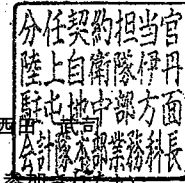 分任契約担当官
陸上自衛隊伊丹
駐屯地中部方面
西田 武司
会計隊本部業務科長